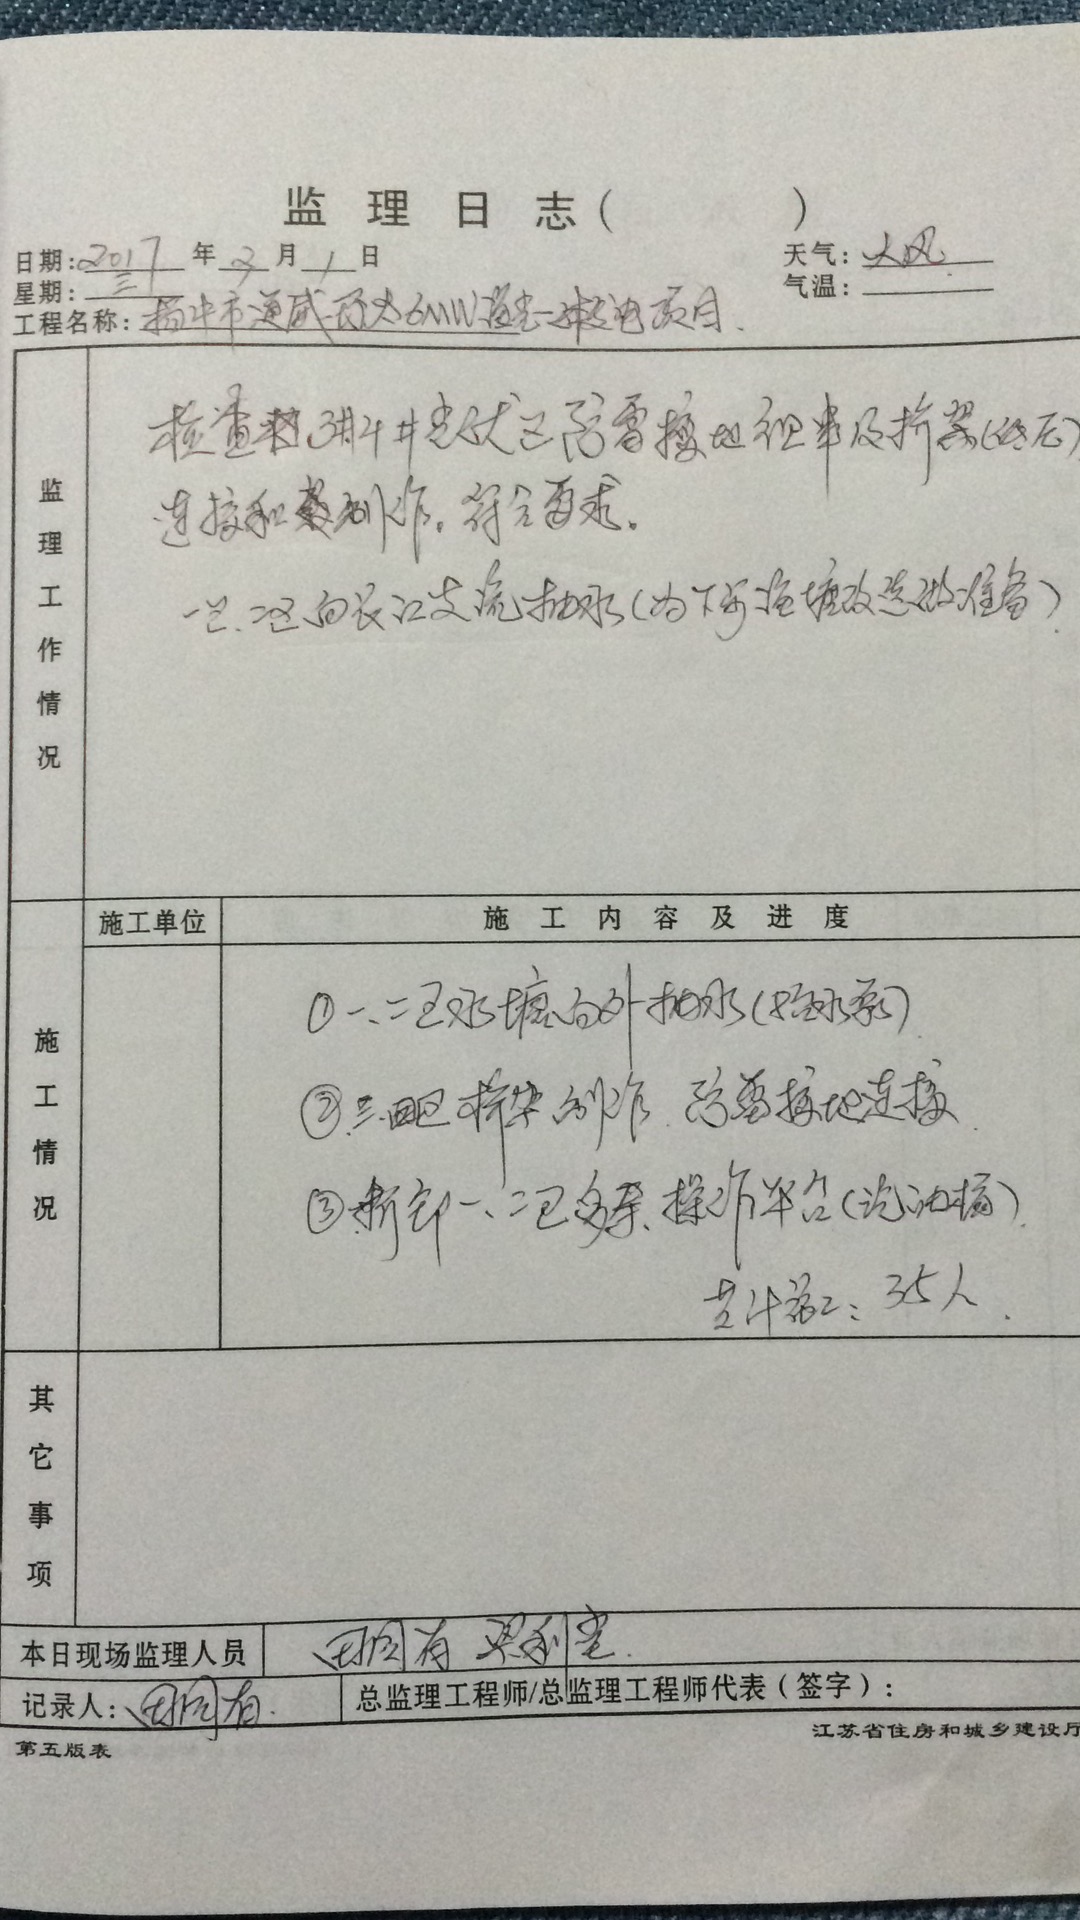 监 理 日 志 (          )
日期: 2017 年 2 月 1 日
天气: 大风
星期: 三
气温:
工程名称: 扬中市通威 6MW渔光一体发电项目.
监理工作情况
检查 3#4#光伏区防雷接地组串及桥架
连接和制作。符合要求。
一区、二区向长江支流抽水(为下步 塘改造做准备)
施工单位
施 工 内 容 及 进 度
施工情况
①一、二区水塘向外抽水( 水泵)
②三.四区桥架制作 防雷接地连接.
③拆卸一、二区 操作平台( 油桶)
共计施工: 35人.
其它事项
本日现场监理人员
田国有 梁利
记录人: 田国有.
总监理工程师/总监理工程师代表(签字):
第五版表
江苏省住房和城乡建设厅